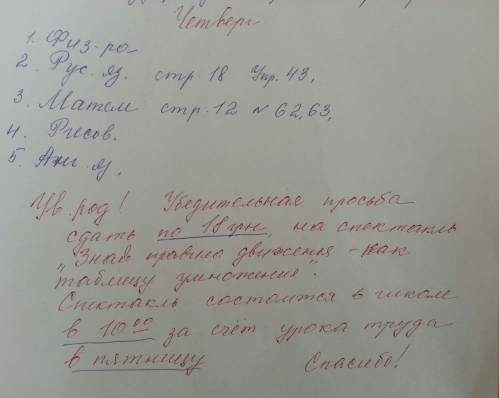 Четверг
1. Физ-ра
2. Рус. яз. стр. 18 Упр. 43.
3. Матем стр. 12 № 62, 63.
4. Рисов.
5. Анг. яз.
Ув. род! Убедительная просьба
сдать по 18 грн. на спектакль
„Знай правила движения - как
таблицу умножения".
Спектакль состоится в школе
в 10⁰⁰ за счёт урока труда
в пятницу Спасибо!